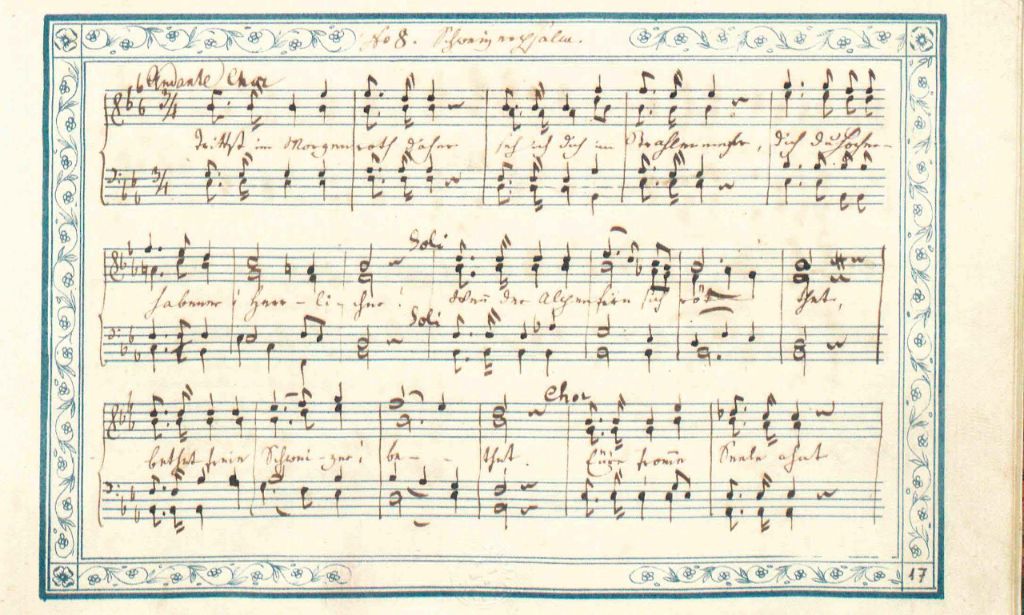 No 8. Schweizerpsalm.
Andante Chor
3/4
Trittst im Morgenroth daher seh' ich dich im Strahlenmeer, dich du Hocher-
3/4
Soli
habener! Herr - li - cher! Wenn der Alpenfirn sich röt - thet,
Soli
Chor
bethet freie Schwei - zer! be - - thet. Eure fromme Seele ahnt
17